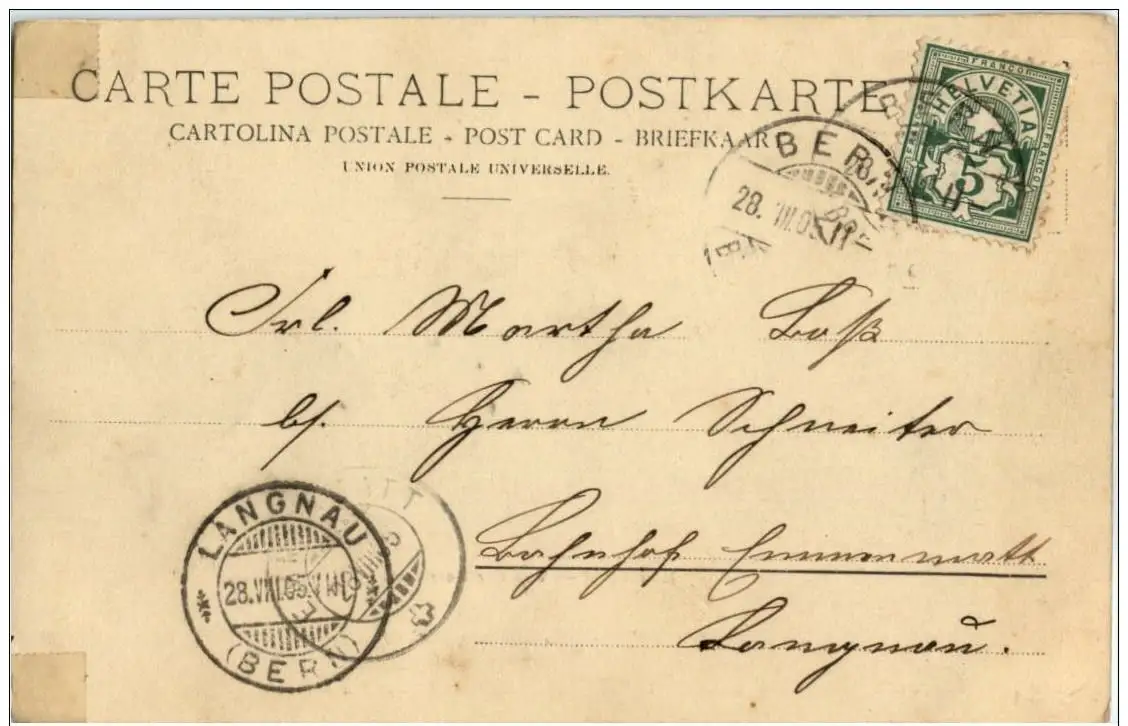 CARTE POSTALE - POSTKARTE
CARTOLINA POSTALE - POST CARD - BRIEFKAAR
UNION POSTALE UNIVERSELLE.
FRANCO
HELVETIA
FRANCO
5
BER
28. VIII.05.
Frl. Martha Boß
b/. Herrn Schneiter
Bahnhof Emmenmatt
Langnau.
LANGNAU
28.VIII.05.
(BERN)
ATT